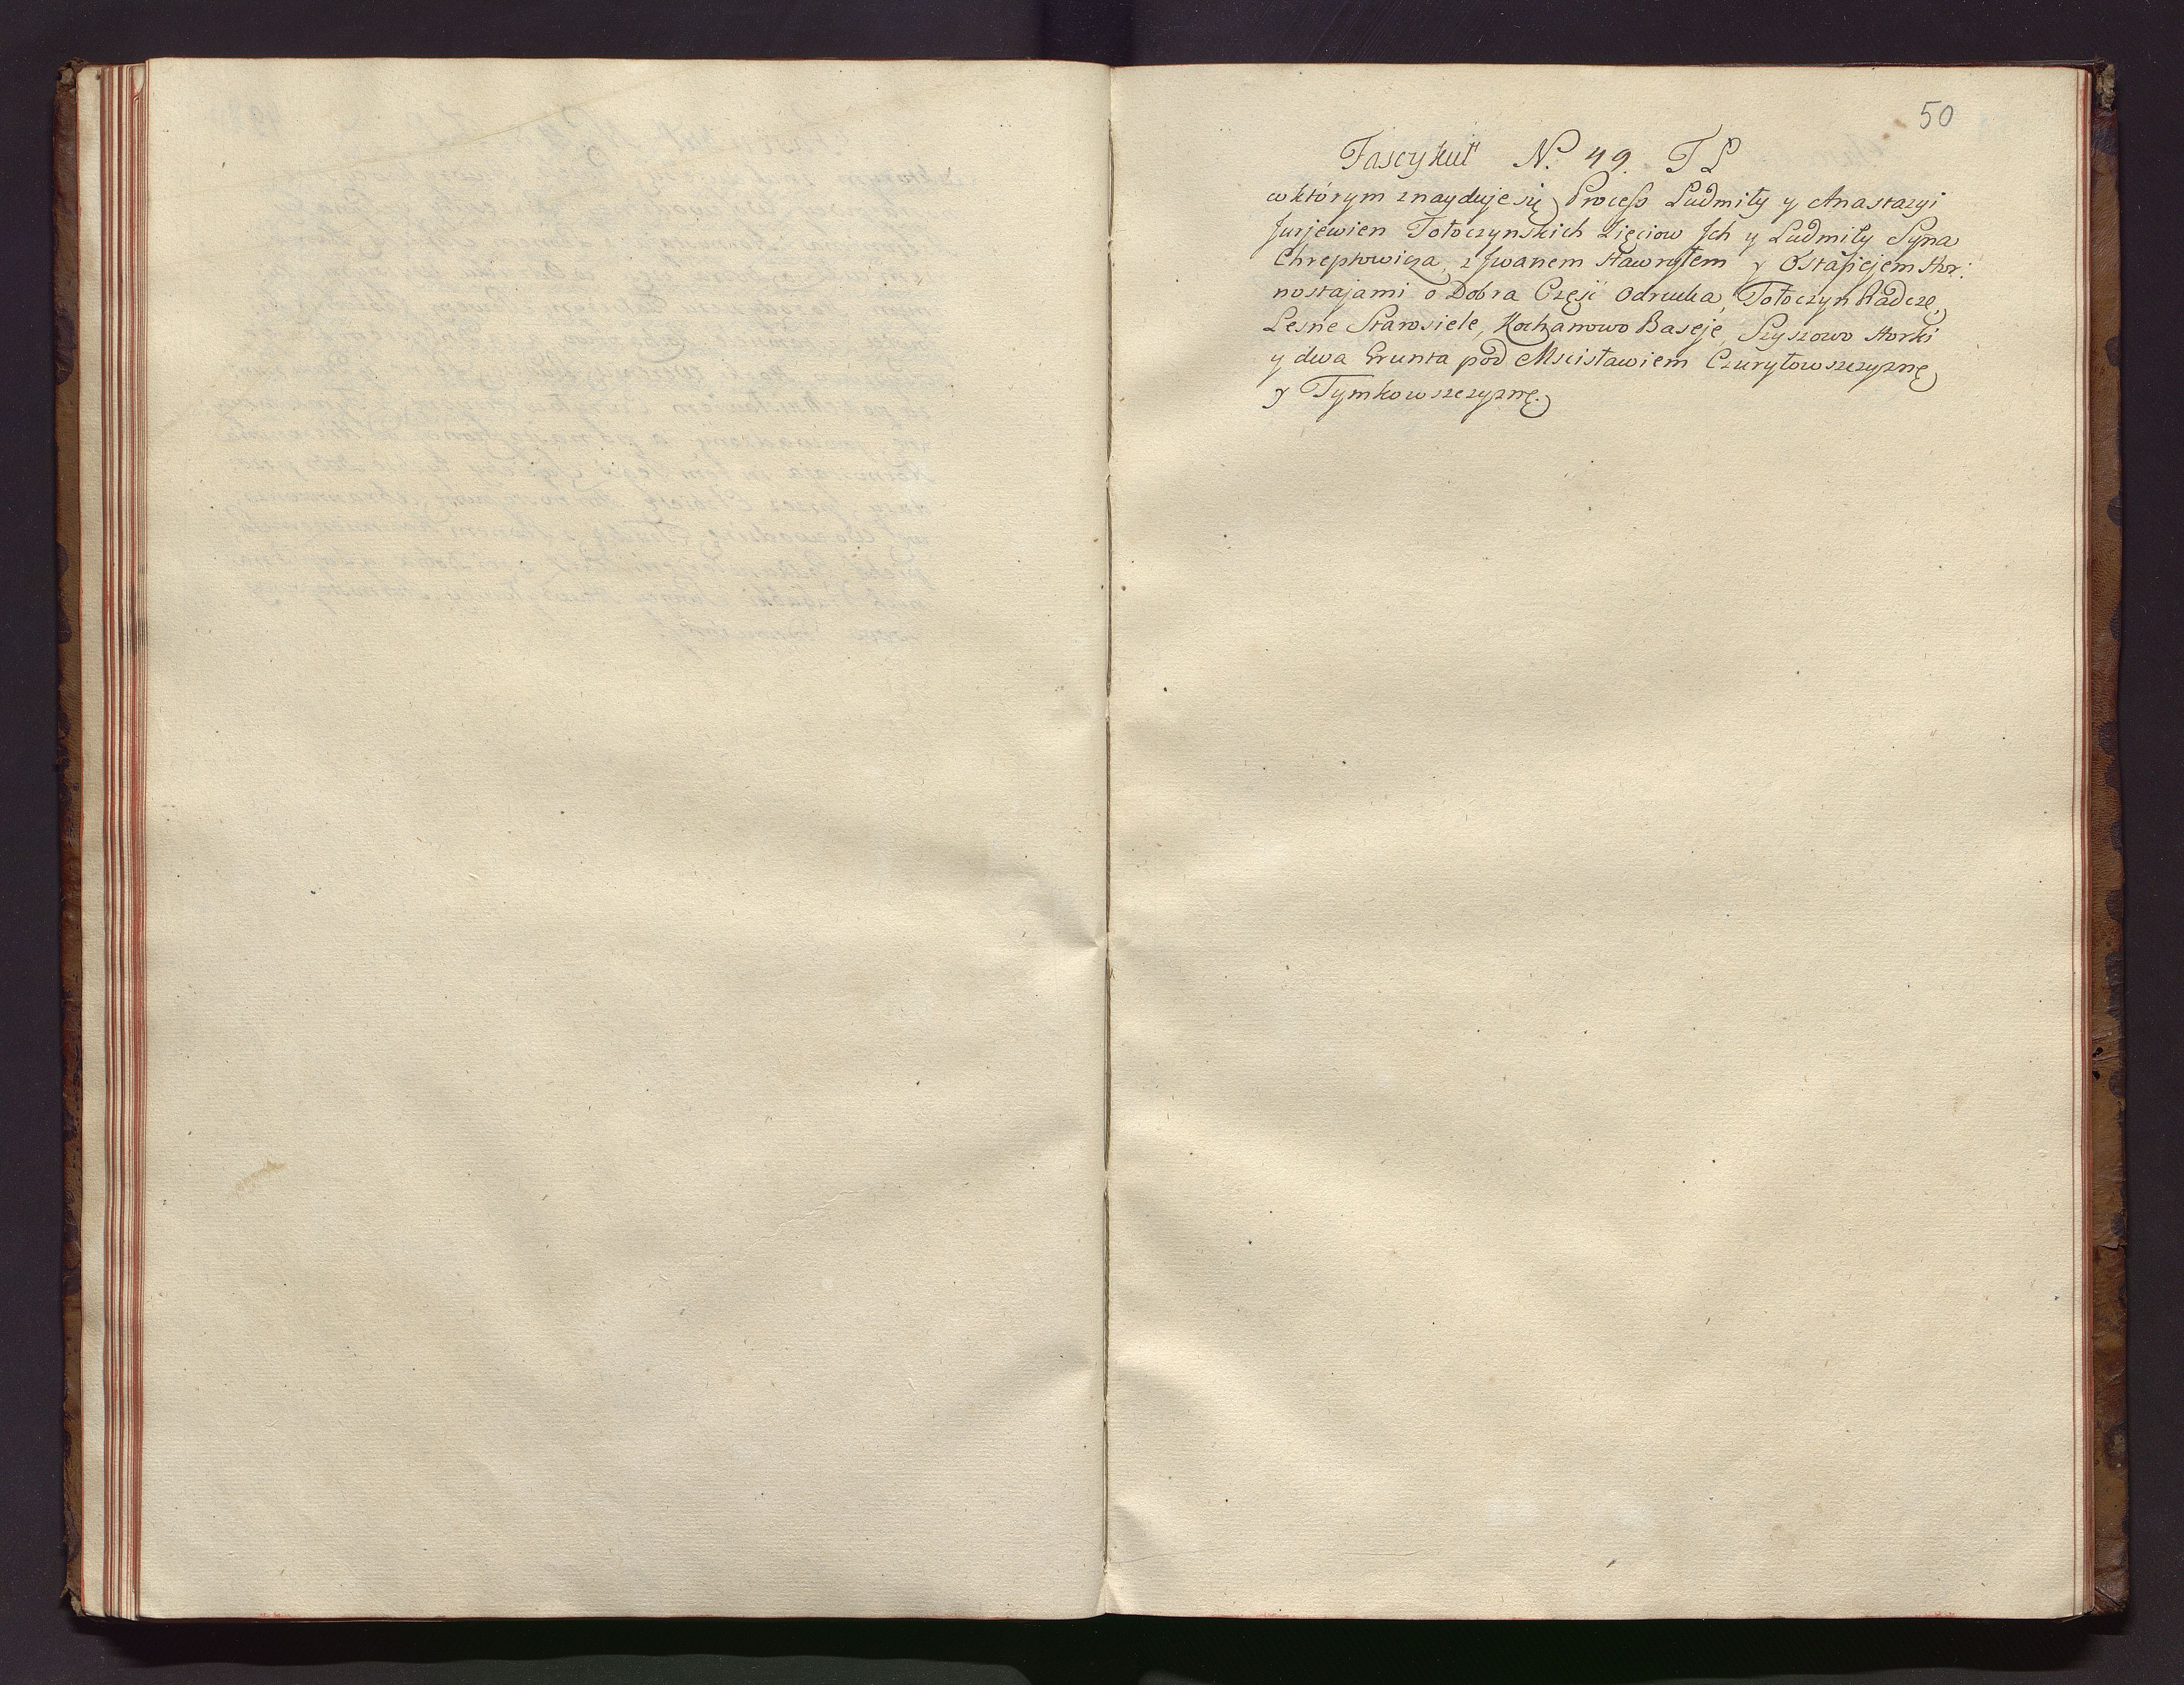 50
Fascykuł N. 49. T L
w którym znayduje się Process Ludmiły y Anastazyi
Jurjewien Tołoczynskich Zięciow Jch y Ludmiły Syna
Chreptowicza, z Jwanem Hawryłem y Ostafiejem Hor:
nostajami o Dobra Częsć Odrucka, Tołoczyn Radczę,
Lesne Starosiele, Kochanowo Baseje, Szyszowo Horki
y dwa Grunta pod Mscisławiem Czuryłowszczyznę
y Tymkowszczyznę.